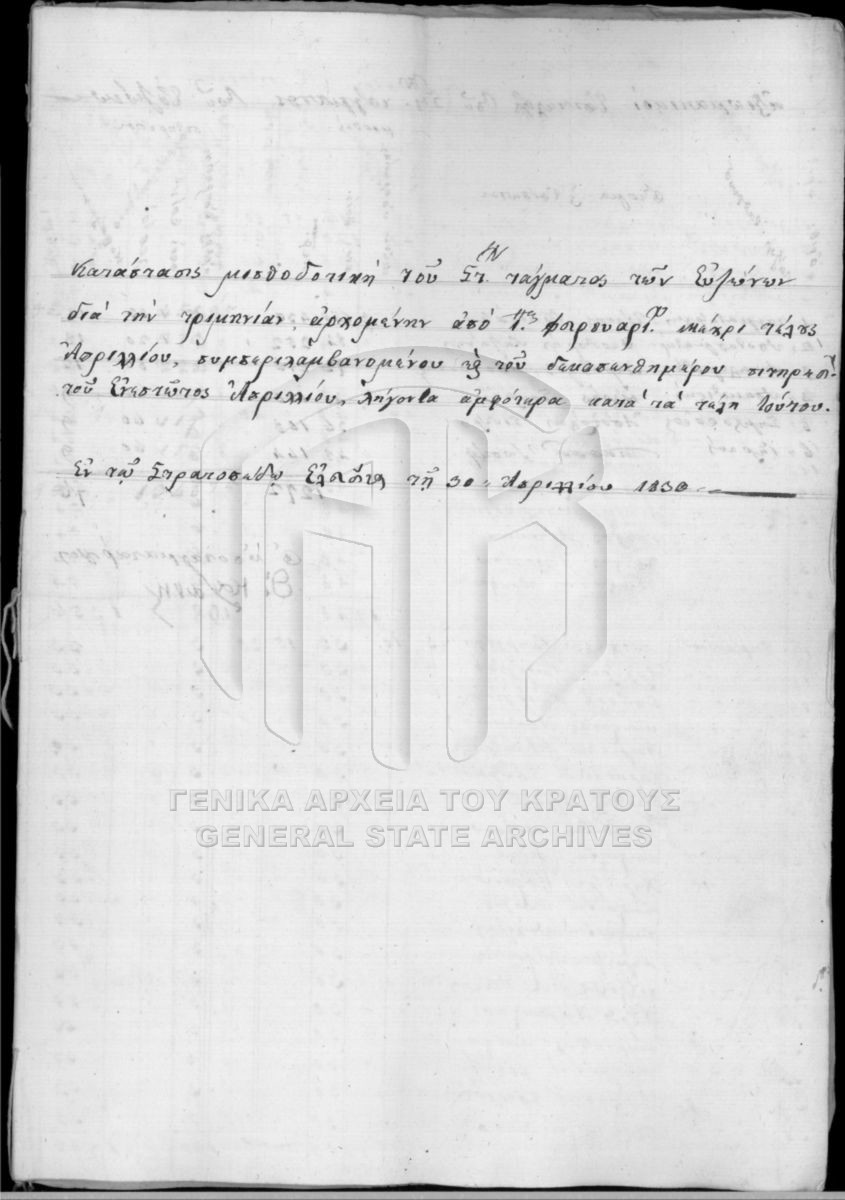 Κατάστασις μισθοδοτική τοῦ Στ. τάγματος τῶν Εὐζώνων
διά τήν τριμηνίαν, ἀρχομένην ἀπό 1ης φευρουαρί μέχρι τέλους
Ἀπριλλίου, συμπεριλαμβανομένου καὶ τοῦ δεκαπενθημέρου
τοῦ Ἐνεστῶτος Ἀπριλλίου, λήγοντα ἀμφότερα κατά τά τέλη τούτου.
Ἐν τῷ Στρατοπέδῳ τῇ 30 Ἀπριλλίου 1830
ΓΕΝΙΚΑ ΑΡΧΕΙΑ ΤΟΥ ΚΡΑΤΟΥΣ
GENERAL STATE ARCHIVES